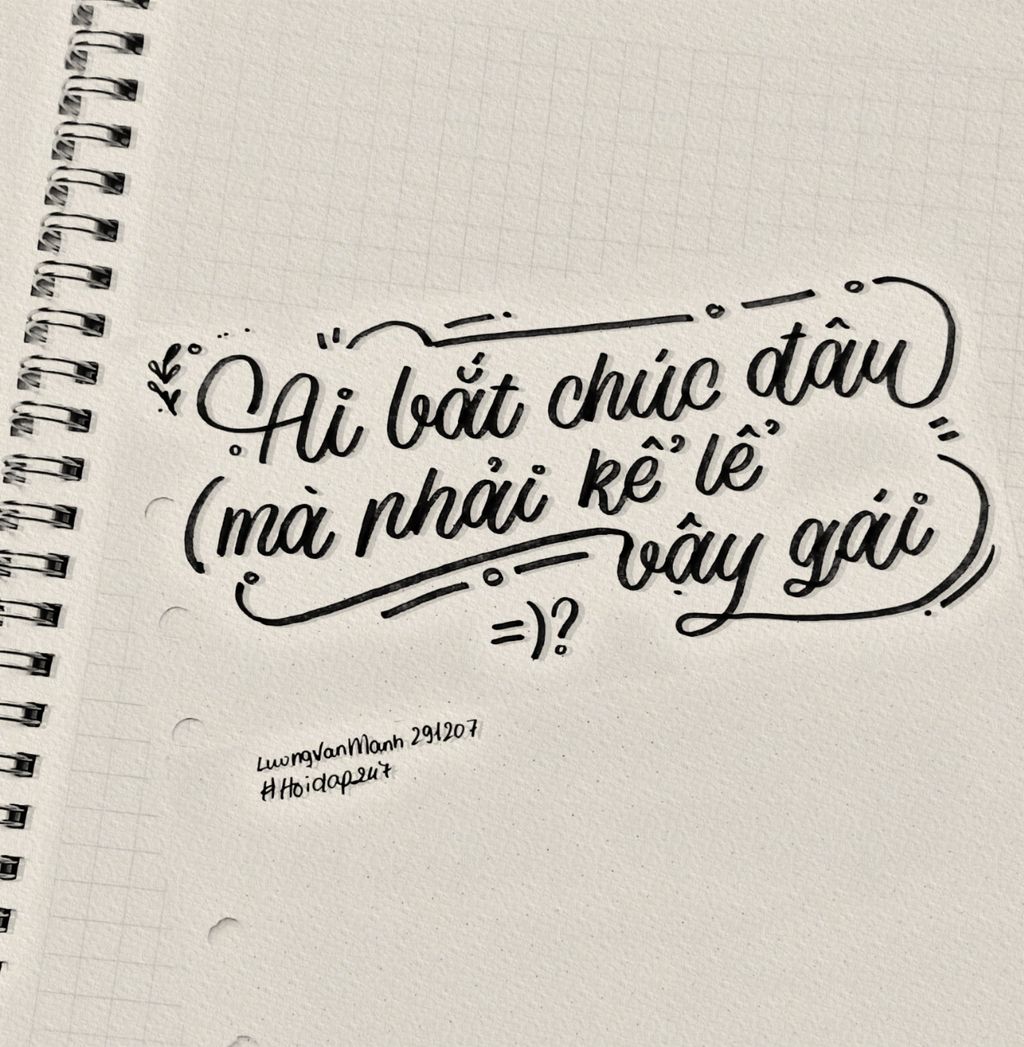 Ai bắt chúc đâu
(mà phải kể lể
vậy gái
=)?
LuongVanManh 291207
#Hoidap247